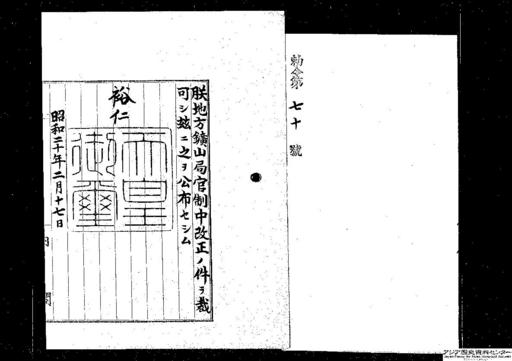 勅令第七十號
朕地方鑛山局官制中改正ノ件ヲ裁
可シ玆ニ之ヲ公布セシム
裕仁
天皇御璽
昭和二十年二月十七日
内閣
アジア歴史資料センター